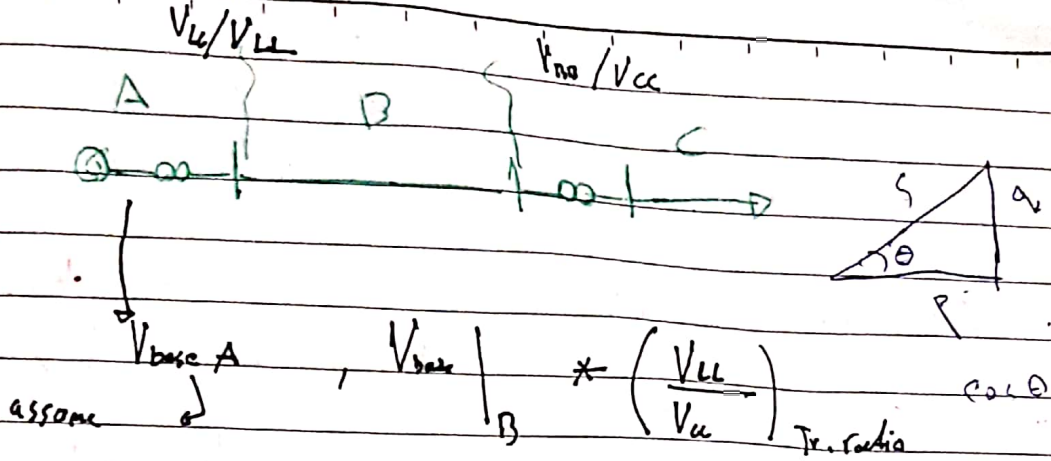 V_LL/V_LL
V_no/V_cc
A B C
S Q
θ
P
V_base A , V_base |_B * (V_LL / V_LL) Tr. ratio
cos θ
assume